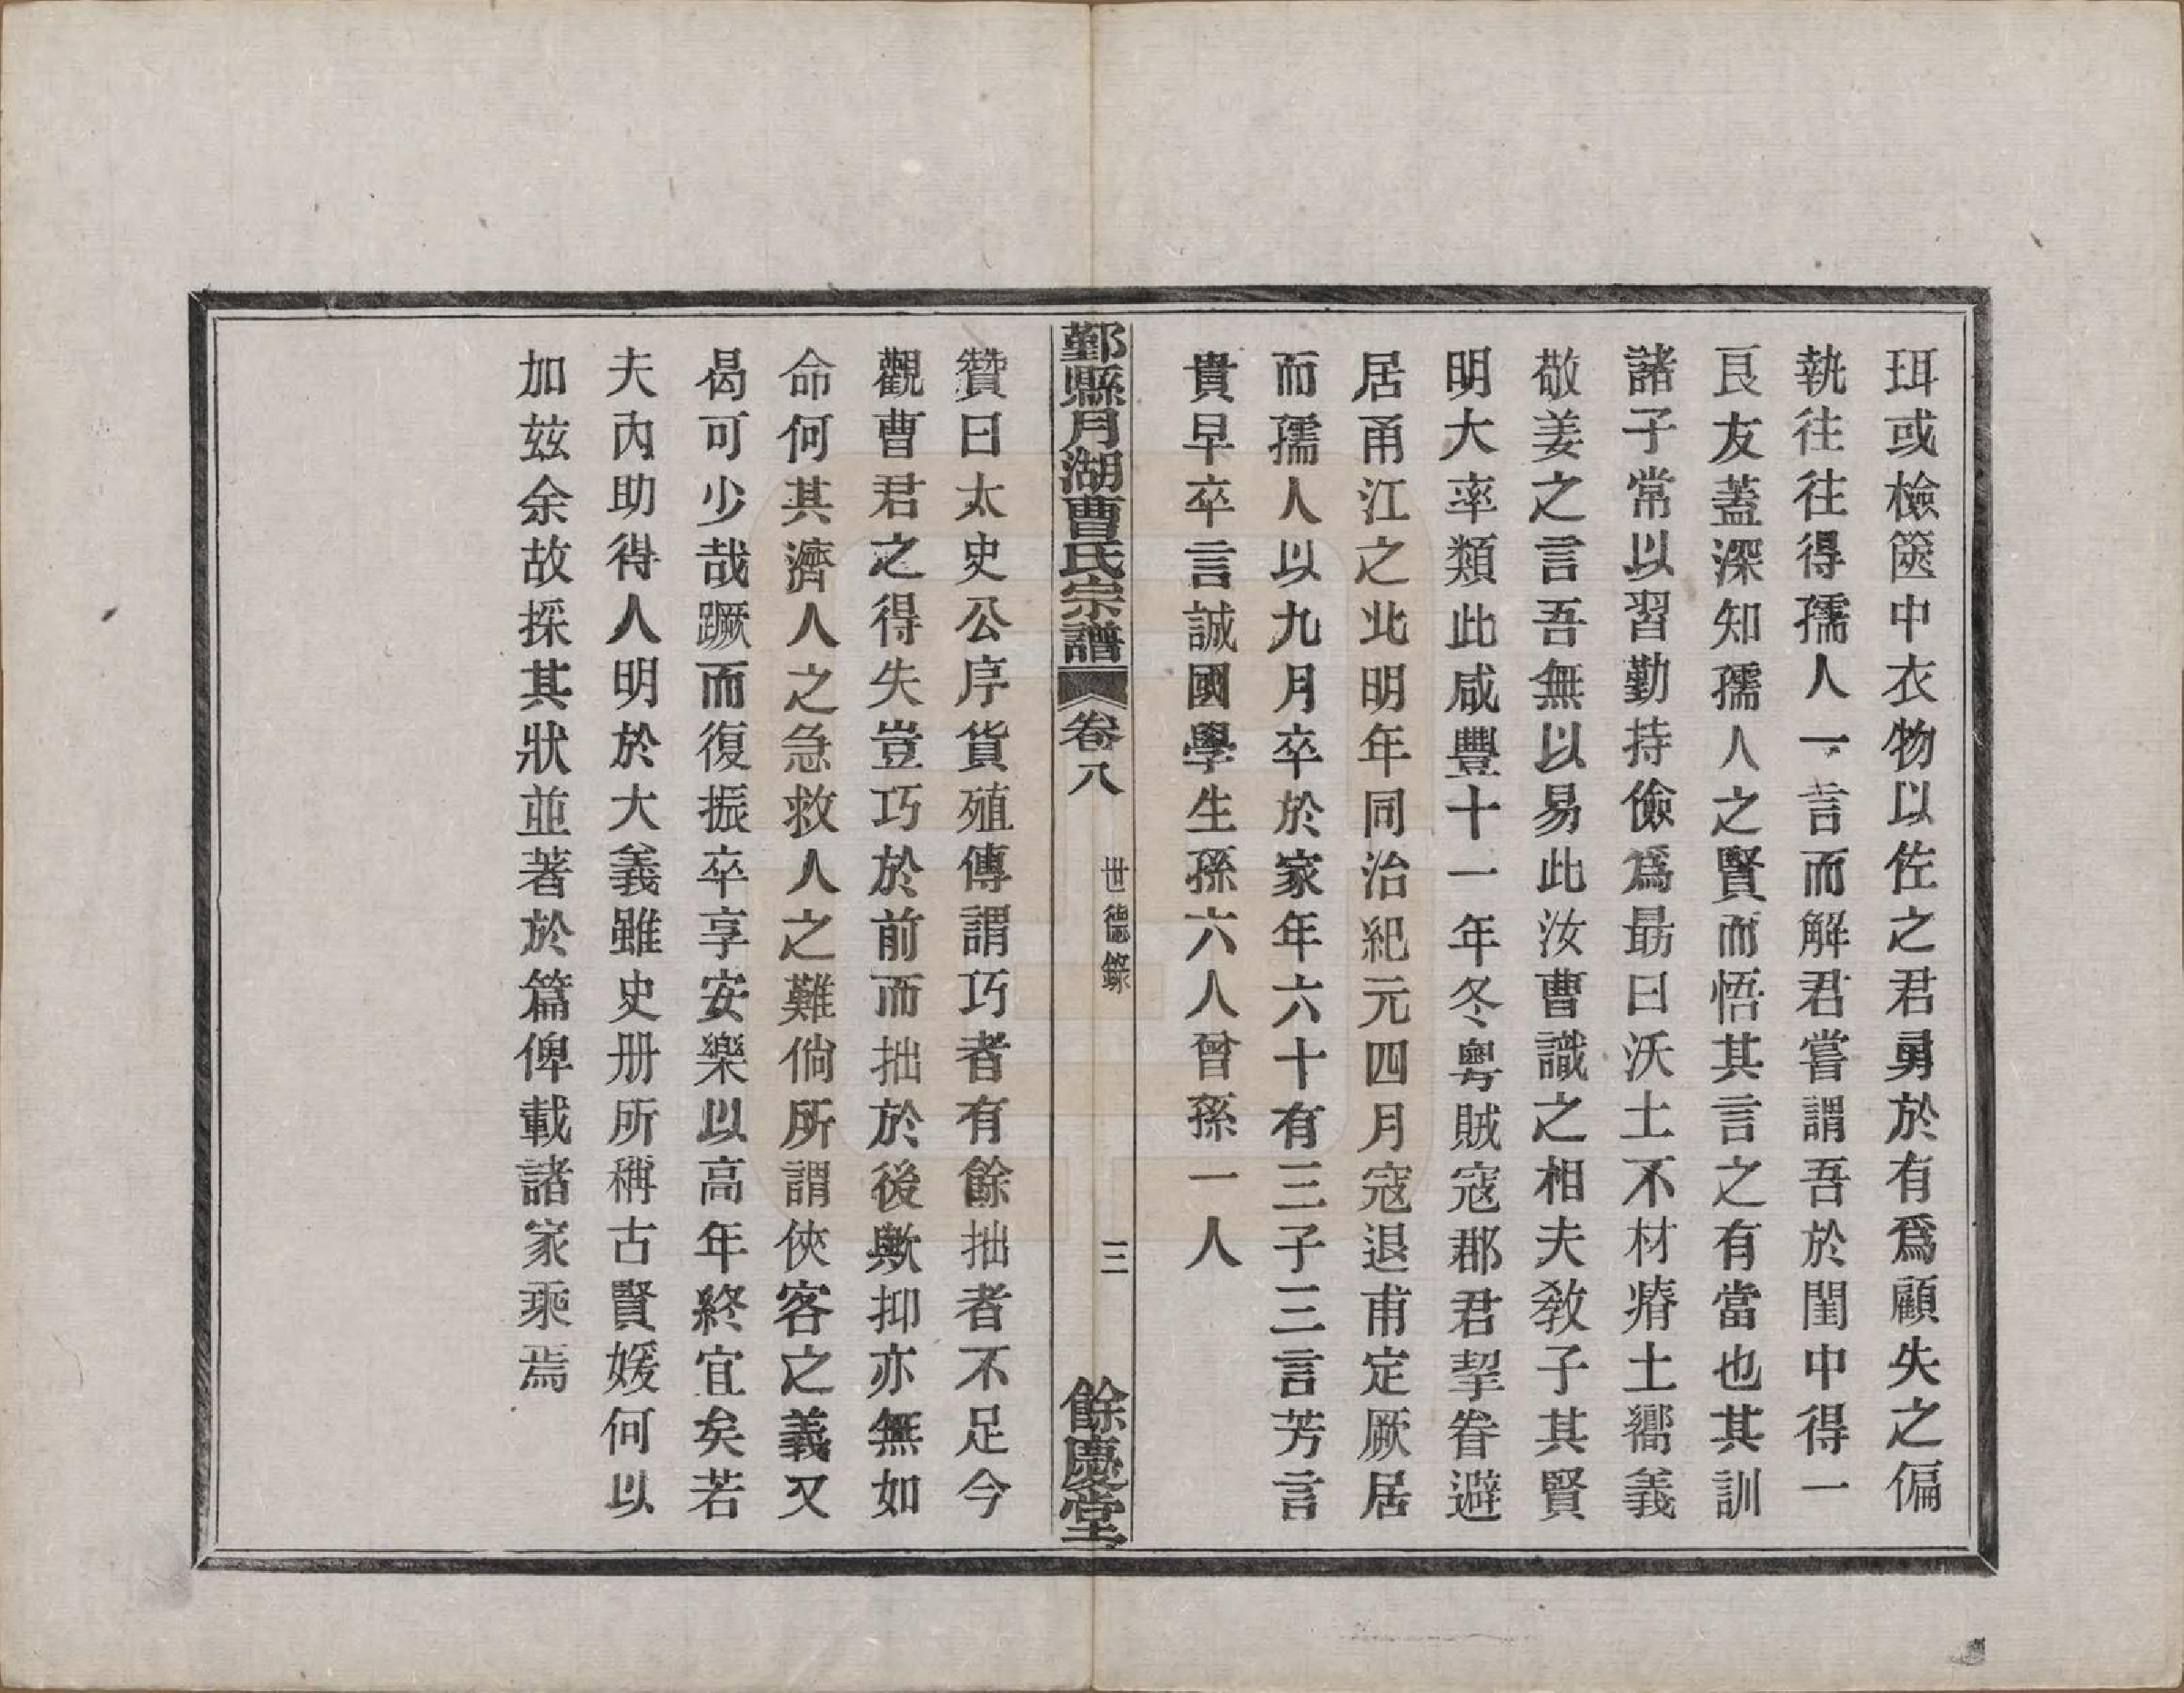 珥或檢篋中衣物以佐之君勇於有爲顧失之偏
執往往得孺人一言而解君嘗謂吾於閨中得一
良友蓋深知孺人之賢而悟其言之有當也其訓
諸子常以習勤持儉爲勗曰沃土不材瘠土嚮義
敬姜之言吾無以易此汝曹識之相夫敎子其賢
明大率類此咸豐十一年冬粵賊寇郡君挈眷避
居甬江之北明年同治紀元四月寇退甫定厥居
而孺人以九月卒於家年六十有三子三言芳言
貴早卒言誠國學生孫六人曾孫一人
鄞縣月湖曹氏宗譜 卷八 世德錄 三 餘慶堂
贊曰太史公序貨殖傳謂巧者有餘拙者不足今
觀曹君之得失豈巧於前而拙於後歟抑亦無如
命何其濟人之急救人之難倘所謂俠客之義又
曷可少哉蹶而復振卒享安樂以高年終宜矣若
夫內助得人明於大義雖史册所稱古賢媛何以
加玆余故採其狀並著於篇俾載諸家乘焉